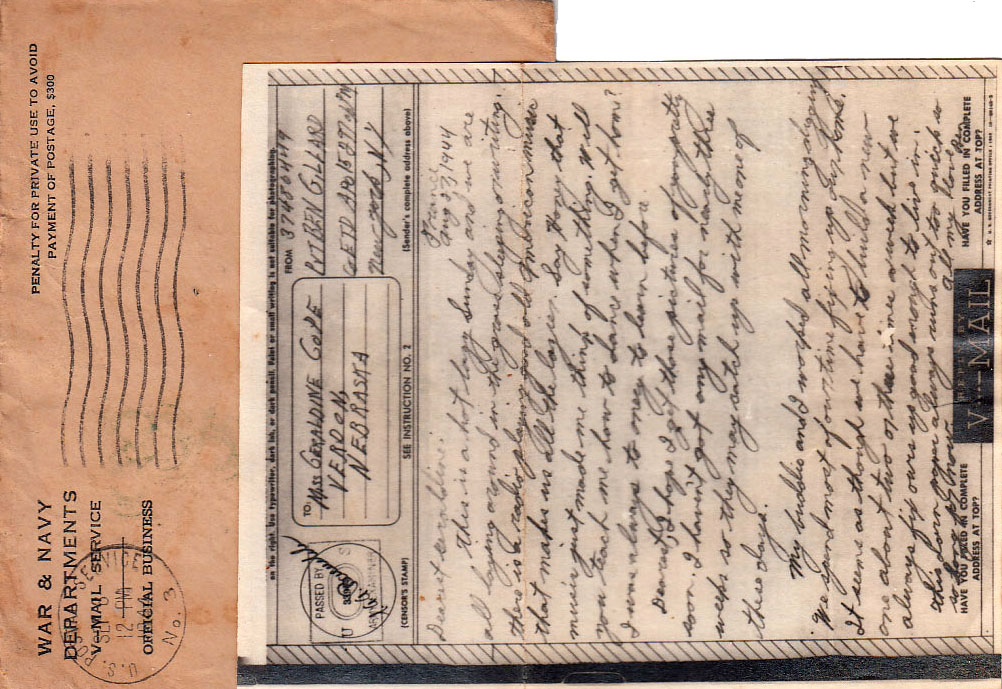 PENALTY FOR PRIVATE USE TO AVOID
PAYMENT OF POSTAGE, $300
WAR & NAVY
DEPARTMENTS
V-MAIL SERVICE
OFFICIAL BUSINESS
U.S. POSTAL SERVICE
SEP
12-PM
No. 3
on the right. Use typewriter, dark ink, or dark pencil. Faint or small writing is not suitable for photographing.
TO:
MISS GERALDINE GOLE
VERDON,
NEBRASKA
FROM
PVT BEN GILLARD
New York N Y
PASSED BY
U S
ARMY EXAMINER
(CENSOR'S STAMP)
SEE INSTRUCTION NO. 2
(Sender's complete address above)
France
Aug 33, 1944
Dearest
this is a hot lazy Sunday and we are
all laying around in the grass sleeping or writing.
there is a radio playing good old American music
that makes us all the lazier. Say Honey that
music just made me think of something. Will
you teach me how to dance when I get home?
I was always to ornery to learn before
Dearest, I hope I get those pictures of you pretty
soon. I haven't got any mail for nearly three
weeks so they may catch up with me one of
these days.
My buddie and I worked all morning digging
We spend most of our time fixing up our homes.
It seems as though we have to build a new
one about two or three times a week but we
always fix ours up good enough to live in.
this horn again always runs out to quick so
so long for now
all my love
Ben
HAVE YOU FILLED IN COMPLETE
ADDRESS AT TOP?
REPLY BY
V···MAIL
HAVE YOU FILLED IN COMPLETE
ADDRESS AT TOP?